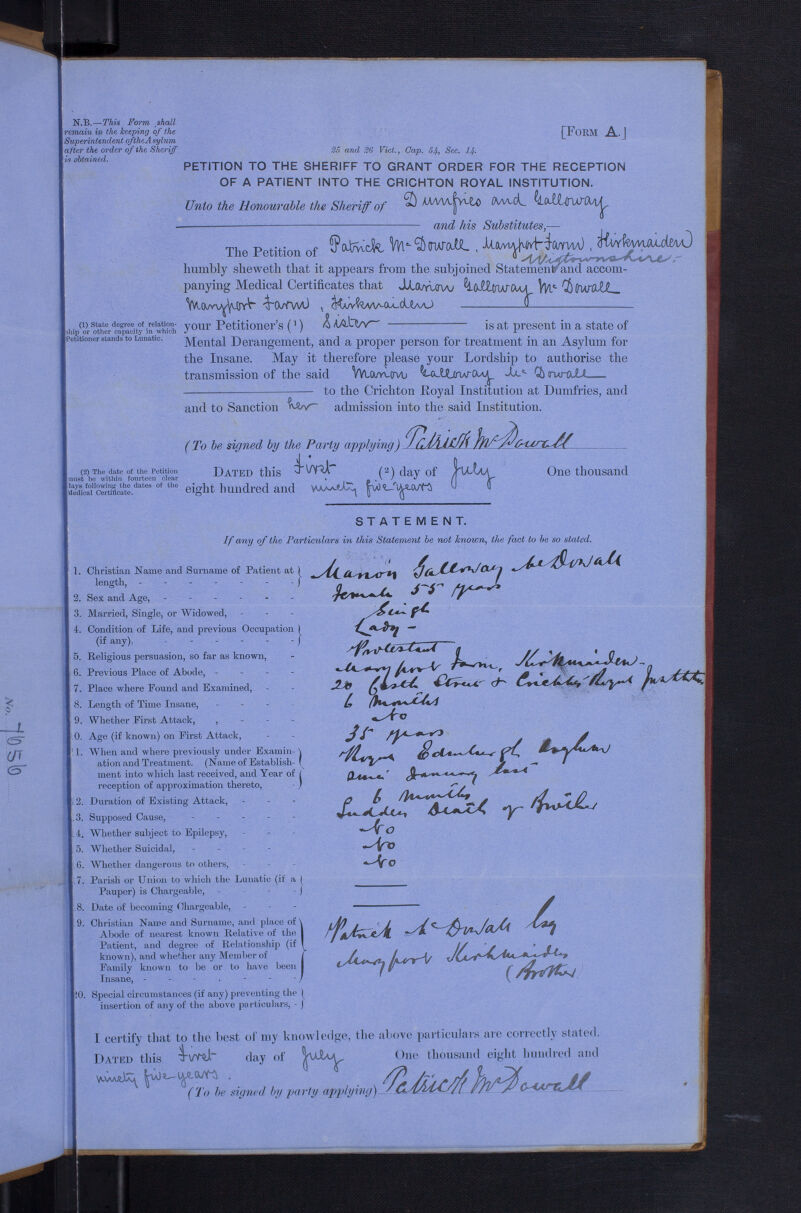 N.B.—This Form shall
remain in the keeping of the
Superintendent of the Asylum
after the order of the Sheriff
is obtained.
[FORM A.]
25 and 26 Vict., Cap. 54, Sec. 14.
PETITION TO THE SHERIFF TO GRANT ORDER FOR THE RECEPTION
OF A PATIENT INTO THE CRICHTON ROYAL INSTITUTION.
Unto the Honourable the Sheriff of Dumfries and Galloway
and his Substitutes,—
The Petition of Patrick McDowall, Maryport Farm, Kirkmaiden
Wigtownshire.
humbly sheweth that it appears from the subjoined Statement and accom-
panying Medical Certificates that Marion Galloway McDowall
Maryport Farm, Kirkmaiden
(1) State degree of relation-
ship or other capacity in which
Petitioner stands to Lunatic.
your Petitioner's (1) Sister is at present in a state of
Mental Derangement, and a proper person for treatment in an Asylum for
the Insane. May it therefore please your Lordship to authorise the
transmission of the said Marion Galloway McDowall
to the Crichton Royal Institution at Dumfries, and
and to Sanction her admission into the said Institution.
(To be signed by the Party applying) Patrick McDowall
(2) The date of the Petition
must be within fourteen clear
days following the dates of the
Medical Certificate.
DATED this First (2) day of July One thousand
eight hundred and ninety five years
STATEMENT.
If any of the Particulars in this Statement be not known, the fact to be so stated.
1. Christian Name and Surname of Patient at length, - Marion Galloway McDowall
2. Sex and Age, - female 55 years
3. Married, Single, or Widowed, - Single
4. Condition of Life, and previous Occupation (if any). - Lady -
5. Religious persuasion, so far as known, - Protestant
6. Previous Place of Abode, - Maryport Farm, Kirkmaiden.
7. Place where Found and Examined, - 20 Castle Street & Crichton Royal Institution
8. Length of Time Insane, - 6 Months
9. Whether First Attack, - No
0. Age (if known) on First Attack, - 35 years
1. When and where previously under Examin-
ation and Treatment. (Name of Establish-
ment into which last received, and Year of
reception of approximation thereto,
Royal Edinburgh Asylum
since January last
2. Duration of Existing Attack, - 6 Months
3. Supposed Cause, - Sudden Death of Brother
4. Whether subject to Epilepsy, - No
5. Whether Suicidal, - No
6. Whether dangerous to others, - No
7. Parish or Union to which the Lunatic (if a
Pauper) is Chargeable, -
8. Date of becoming Chargeable, -
9. Christian Name and Surname, and place of
Abode of nearest known Relative of the
Patient, and degree of Relationship (if
known), and whether any Member of
Family known to be or to have been
Insane, -
Patrick McDowall Esq
Maryport Kirkmaiden
(Brother)
20. Special circumstances (if any) preventing the
insertion of any of the above particulars, -
I certify that to the best of my knowledge, the above particulars are correctly stated.
DATED this First day of July One thousand eight hundred and
ninety five years.
(To be signed by party applying) Patrick McDowall
No. 7656